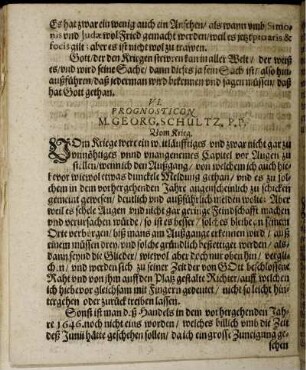 Es hat zwar ein wenig auch ein Ansehen/ als wann umb
nis und Judæ wol Fried gemacht werden/ weil es jetzt
fœcis gilt: aber es ist nicht wol zu trawen.
Gott/ der den Kriegen stewren kan in aller Welt/ der weiß
es/ und wird seine Sach/ dann dieses ja sein Sach ist/ also hin-
außführen/ daß jederman wird bekennen und sagen müssen/ daß
hat Gott gethan.
VI.
PROGNOSTICON
M. GEORG. SCHULTZ, P.P.
Vom Krieg.
VOm Kriege were ein weitläufftiges und zwar nicht gar zu
unnöhtiges unnd unangenemes Capitel vor Augen zu
stellen/ wenn ich den Außgang/ von welchem ich auch hie-
bevor wiewol etwas dunckele Meldung gethan/ und es zu sol-
chem in dem vorhergehenden Jahre augenscheinlich zu schicken
gemeint gewesen/ deutlich und außführlich melden wolte: Aber
weil es sehle Augen und nicht gar geringe Feindschafft machen
und verursachen würde/ so ist es besser/ solches bleibe an seinem
Orte verborgen/ biß mans am Außgange erkennen wird/ als
einem müssen drey/ und solche gründlich bestettiget werden/ als-
dann seynd die Glieder/ wiewol aber doch nur oben hin/ vergli-
chen/ und werden sich zu seiner Zeit der von GOtt beschlossene
Raht und von ihm auff den Platz gestalte Richter/ auff welchen
ich hiebevor gleichsam mit Fingern gedeutet/ nicht so leicht hin-
tergehen oder zurück treiben lassen.
Sonst ist man deß Handels in dem vorhergehenden Jah-
re 1646. noch nicht eins worden/ welches billich umb die Zeit
deß Junii hätte geschehen sollen/ da ich ein grosse Zuneigung ge-
sehen